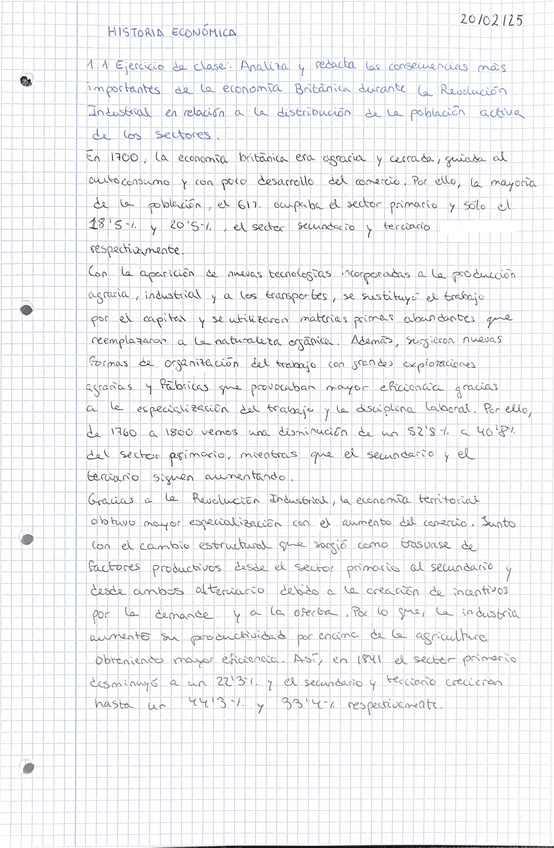 20/02/25
HISTORIA ECONÓMICA
1.1 Ejercicio de clase: Analiza y redacta las consecuencias más
importantes de la economía Británica durante la Revolución
Industrial en relación a la distribución de la población activa
de los sectores.
En 1700, la economía británica era agraria y cerrada, guiada al
autoconsumo y con poco desarrollo del comercio. Por ello, la mayoría
de la población, el 61% ocupaba el sector primario y sólo el
18'5% y 20'5%, el sector secundario y terciario
respectivamente.
Con la aparición de nuevas tecnologías incorporadas a la producción
agraria, industrial y a los transportes, se sustituyó el trabajo
por el capital y se utilizaron materias primas abundantes que
reemplazaron a la naturaleza orgánica. Además, surgieron nuevas
formas de organización del trabajo con grandes explotaciones
agrarias y fábricas que provocaban mayor eficiencia gracias
a la especialización del trabajo y la disciplina laboral. Por ello,
de 1760 a 1800 vemos una disminución de un 52'8% a 40'8%
del sector primario, mientras que el secundario y el
terciario siguen aumentando.
Gracias a la Revolución Industrial, la economía territorial
obtuvo mayor especialización con el aumento del comercio. Junto
con el cambio estructural que surgió como trasvase de
factores productivos desde el sector primario al secundario y
desde ambos al terciario debido a la creación de incentivos
por la demanda y a la oferta. Por lo que, la industria
aumentó su productividad por encima de la agricultura
obteniendo mayor eficiencia. Así, en 1841 el sector primario
disminuyó a un 22'3% y el secundario y terciario crecieron
hasta un 44'3% y 33'4% respectivamente.